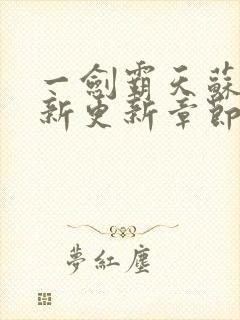 一劍霸天蘇
新更新章節
夢紅塵